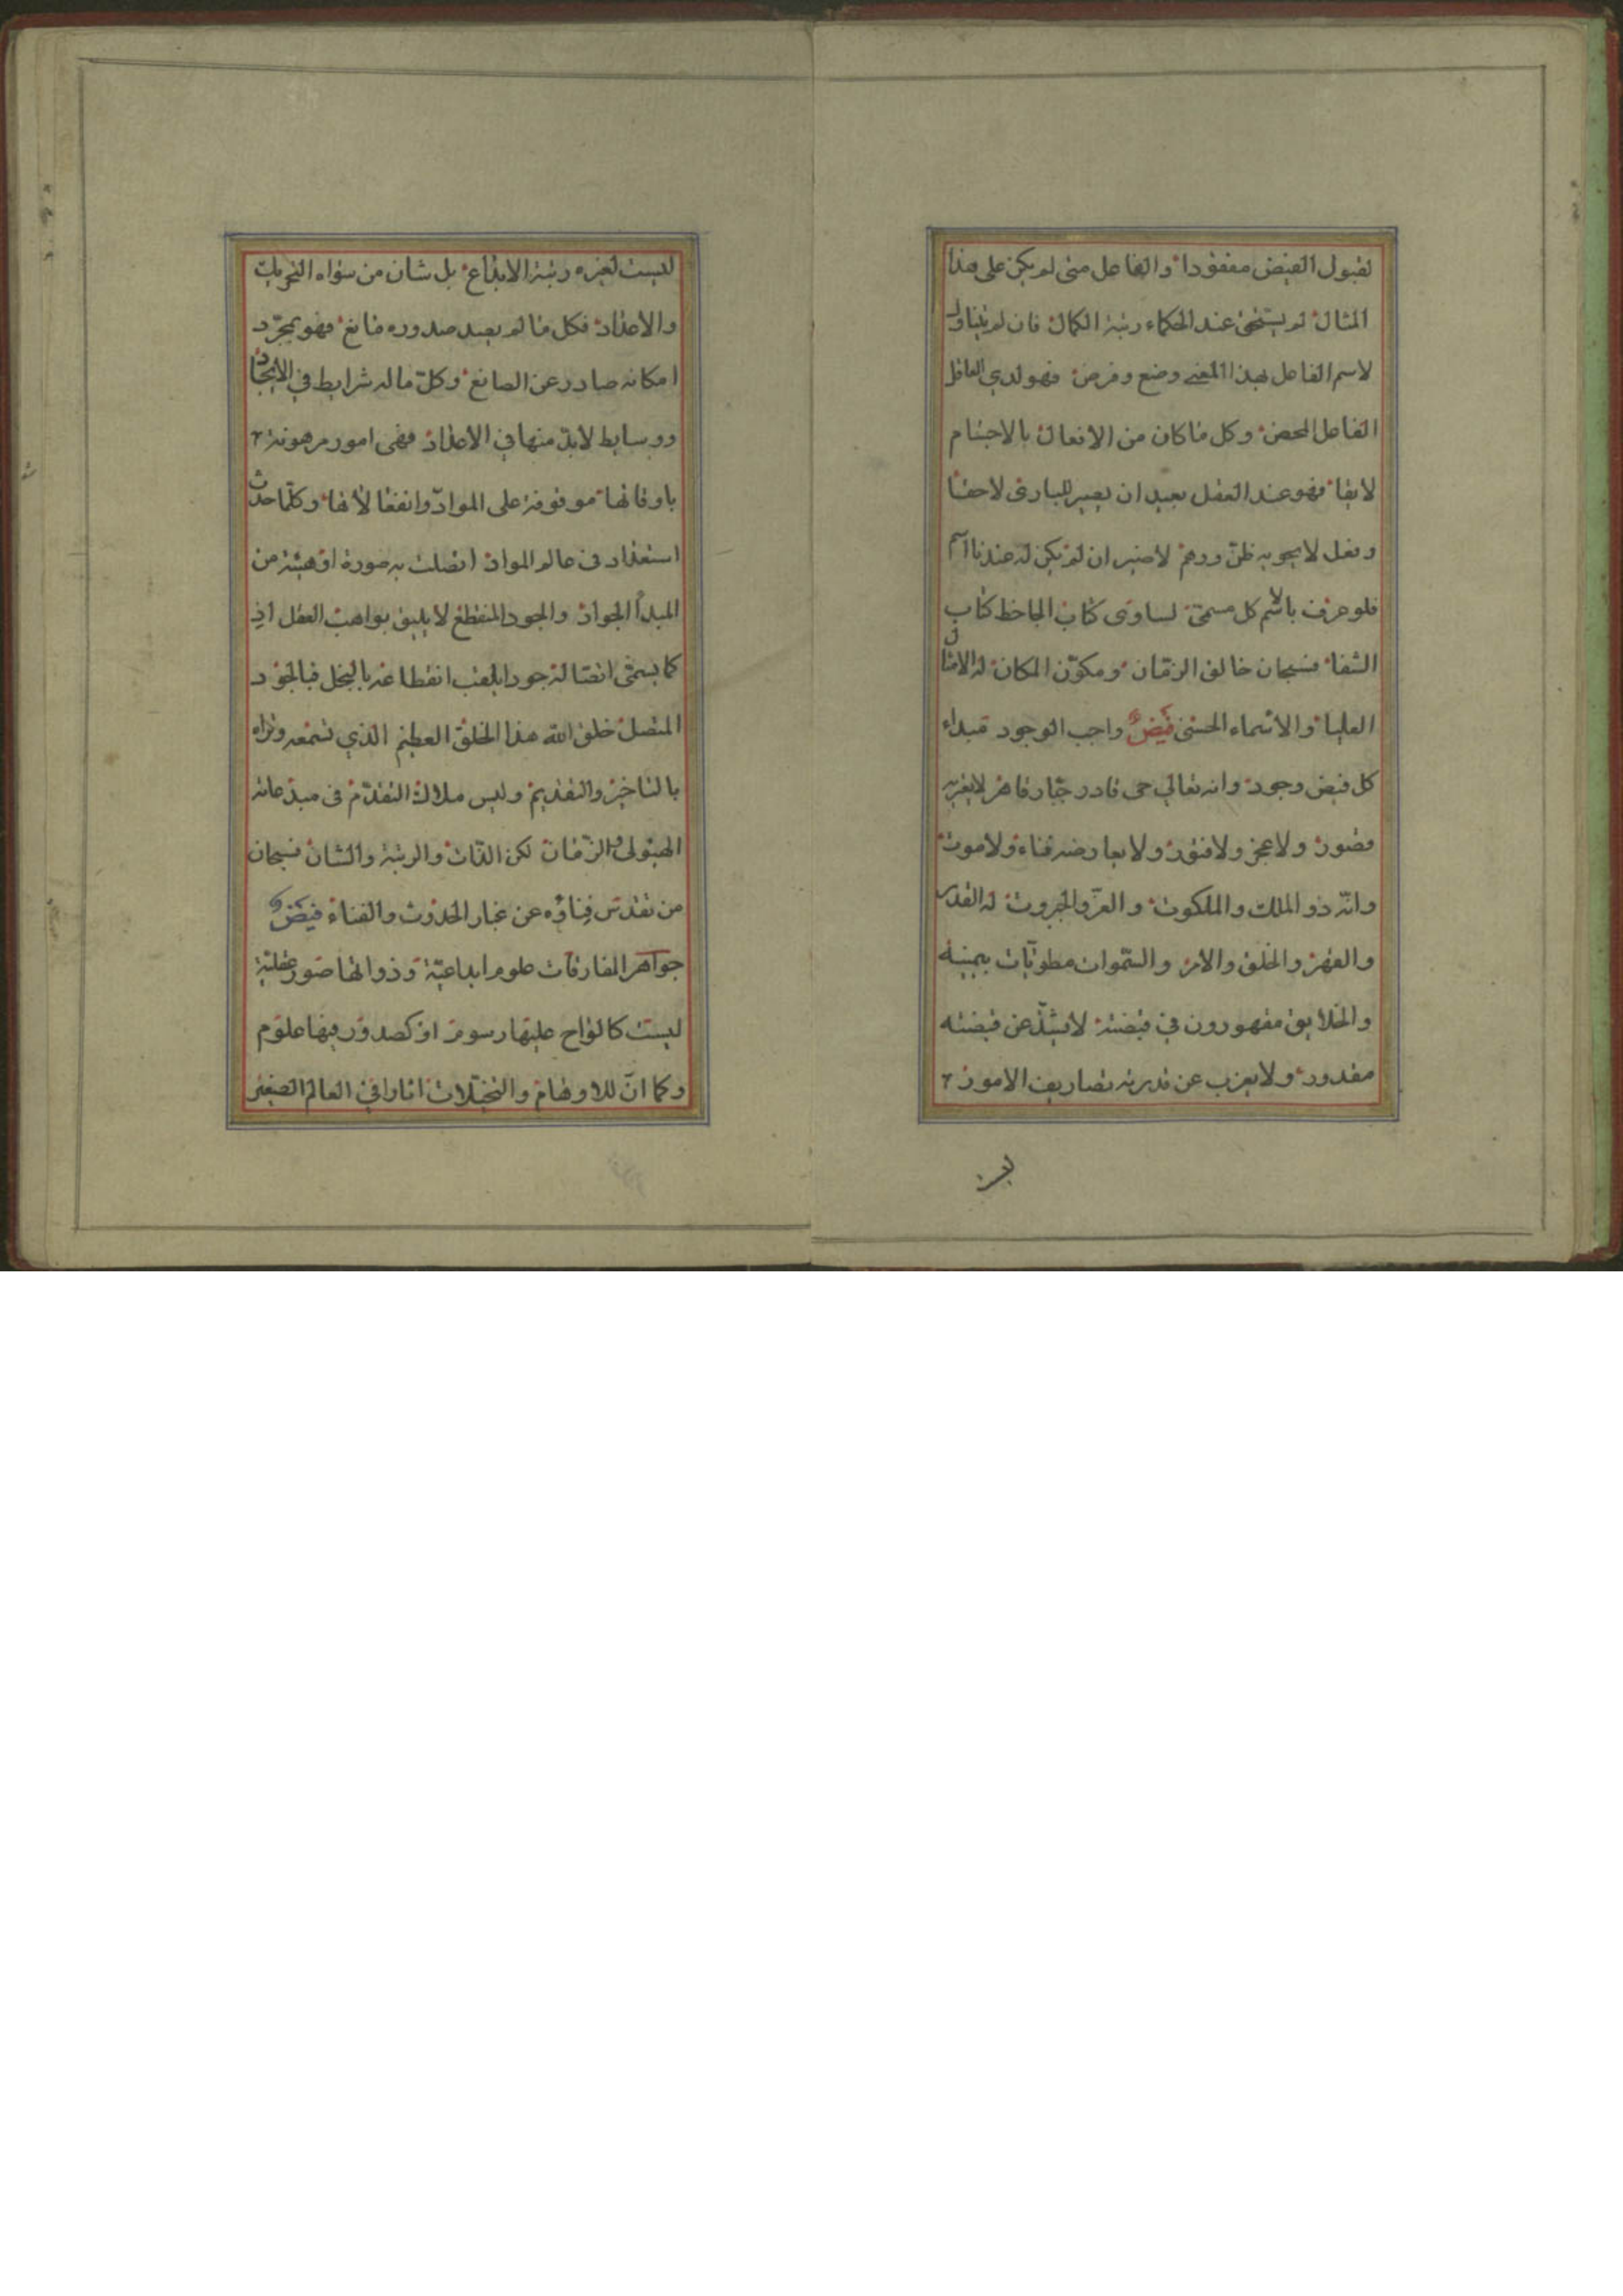 لقبول الفيض مفقودا والفاعل متى لم يكن على هذا
المثال لم يستحق عند الحكماء رتبة الكمال فان لم يتناول
لاسم الفاعل بهذا المعنى وضع وفرض فهو لدي العاقل
الفاعل المحض وكل ما كان من الافعال بالاجسام
لايقا فهو عند العقل بعيد ان يصير للبارى لاحقا
وفعل لا يحويه ظن ووهم لا ضير ان لم يكن له عندنا اسم
فلو عرف بالاسم كل مسمى لساوى كتاب الجاحظ كتاب
الشفا فسبحان خالق الزمان ومكون المكان له الامثال
العليا والاسماء الحسنى فيض واجب الوجود مبداء
كل فيض وجود وانه تعالي حى قادر جبار قاهر لا يعتريه
قصور ولا عجز ولا فتور ولا يعارضه فناء ولا موت
وانه ذو الملك والملكوت والعز والجبروت له القدس
والقهر والخلق والامر والسموات مطويات بيمينه
والخلايق مقهورون في قبضته لا يشذ عن قبضته
مقدور ولا يعزب عن قدرته تصاريف الامور
ليست لغيره رتبة الابداع بل شان من سواه التحريك
والاعداد فكل ما لم يعبد صدوره مانع فهو بمجرد
امكانه صادر عن الصانع وكل ما له شرايط في الايجاد
ووسايط لابد منها في الاعداد فهى امور مرهونة
باوقاتها موقوفة على المواد وانفعالاتها وكلما حدث
استعداد فى عالم المواد اتصلت به صورة او هيئة من
المبدأ الجواد والجود المنقطع لا يليق بواهب العقل اذ
كما يسمى اتصاله جودا يلقب انقطاعه بالبخل فبالجود
المتصل خلق الله هذا الخلق العظيم الذي تسمعه وتراه
بالتاخير والتقديم وليس ملاك التقدم فى مبدعاته
الهيولى والزمان لكن الذات والرتبة والشان فسبحان
من تقدس فناؤه عن غبار الحدوث والفناء فيض
جواهر المفارقات علوم ابداعية وذواتها صور عقلية
ليست كالواح عليها رسوم او كصدور فيها علوم
وكما ان للاوهام والتخيلات اثارا في العالم الصغير